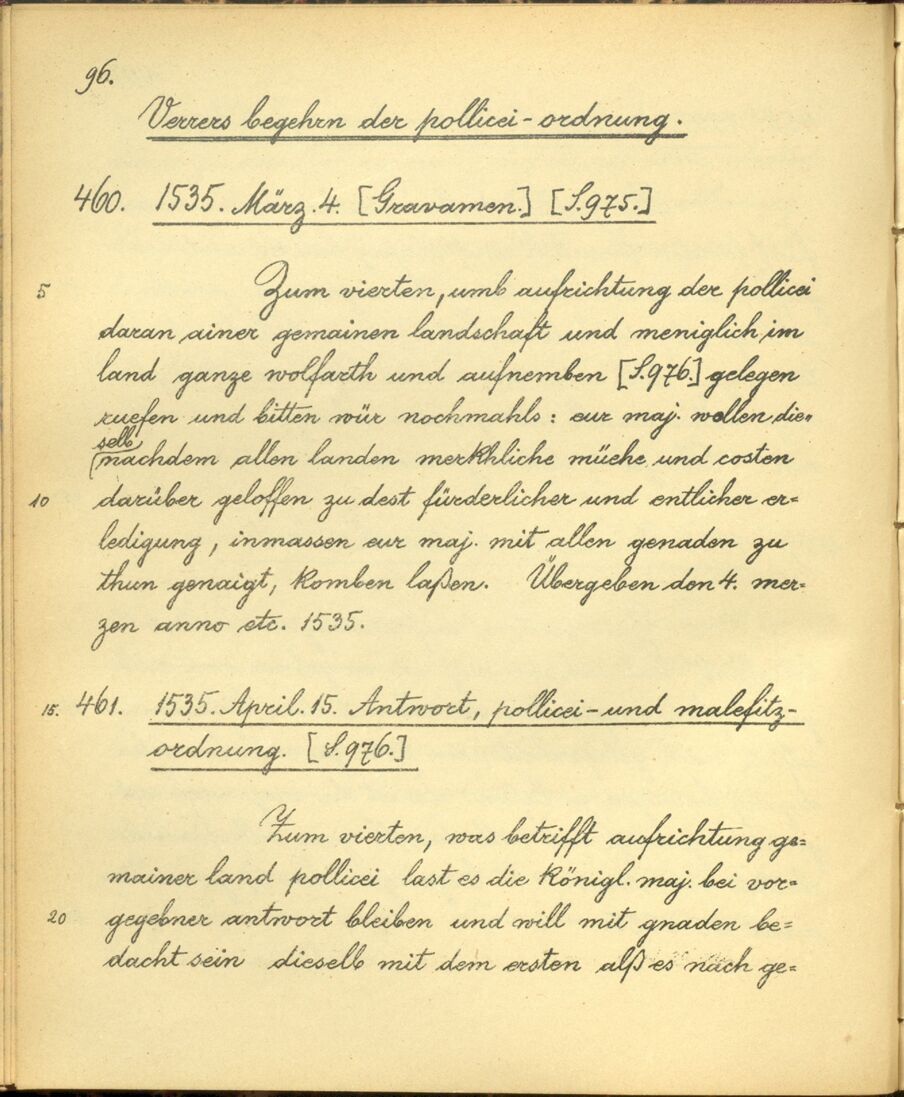 96.
Verrers begehrn der pollicei-ordnung.
460. 1535. März. 4. [Gravamen.] [S.975.]
5 Zum vierten, umb aufrichtung der pollicei
daran ainer gemainen landschaft und meniglich im
land ganze wolfarth und aufnemben [S.976.] gelegen
ruefen und bitten wür nochmahls: eur maj. wollen die=
selb
(nachdem allen landen merkhliche müehe und costen
10 darüber geloffen zu dest fürderlicher und entlicher er=
ledigung, inmassen eur maj. mit allen genaden zu
thun genaigt, komben laßen. Übergeben den 4. mer=
zen anno etc. 1535.
15. 461. 1535. April. 15. Antwort, pollicei- und malefitz-
ordnung. [S.976.]
Zum vierten, was betrifft aufrichtung ge=
mainer land pollicei last es die königl. maj. bei vor=
20 gegebner antwort bleiben und will mit gnaden be=
dacht sein dieselb mit dem ersten alß es nach ge=